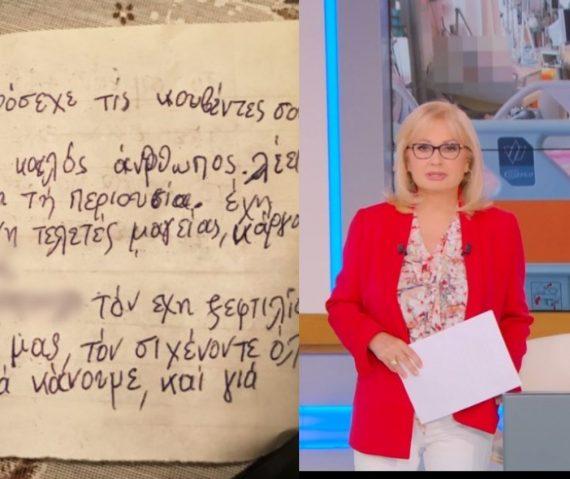 ρόσεχε τίς κουβέντες σο
καλός άνθρωπος. λέει
τή περιουσία. έχη
η τελετές μαγείας, κάργα
τόν έχη ξεφτιλί
μας, τόν σιχένοντε όλ
ά κάνουμε, και γιά